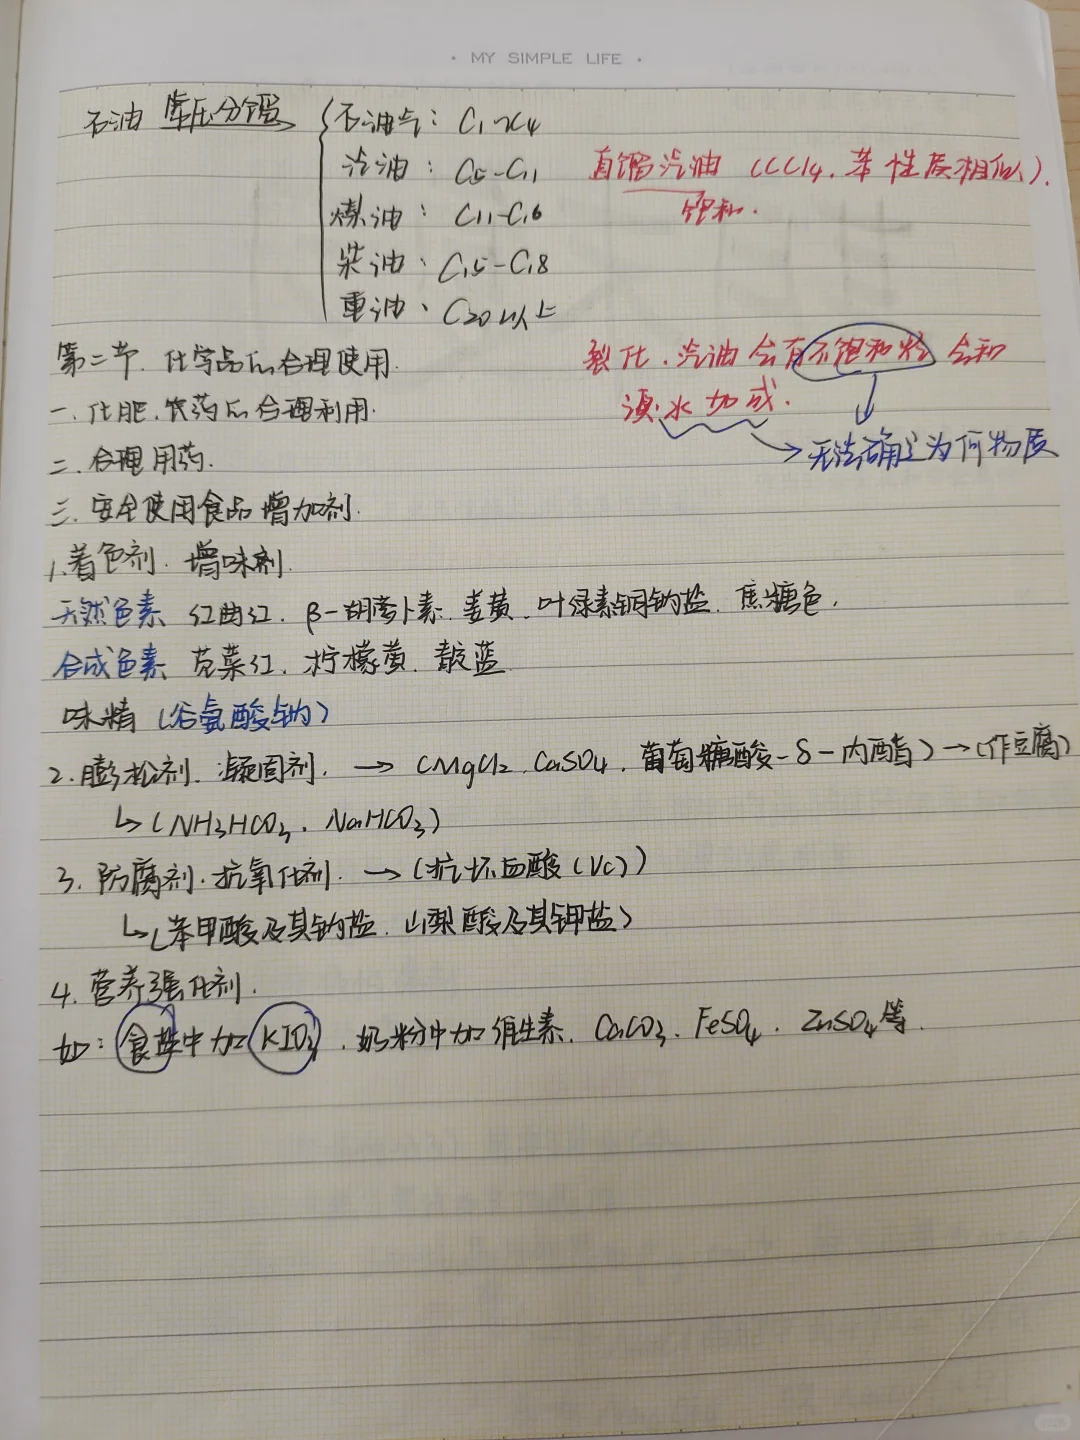 · MY SIMPLE LIFE ·
石油 常压分馏 石油气：C1~C4
汽油：C5-C11 直馏汽油（CCl4、苯性质相似）.
煤油：C11-C16 饱和.
柴油：C15-C18
重油：C20以上
第二节. 化学品的合理使用. 裂化.汽油会有不饱和烃 会和
一. 化肥.农药的合理利用. 溴水加成.
二. 合理用药. →无法确定为何物质
三. 安全使用食品增加剂.
1.着色剂. 增味剂.
天然色素 红曲红. β-胡萝卜素. 姜黄. 叶绿素铜钠盐. 焦糖色.
合成色素 苋菜红. 柠檬黄. 靛蓝
味精（谷氨酸钠）
2.膨松剂. 凝固剂. →（MgCl2. CaSO4. 葡萄糖酸-δ-内酯）→（作豆腐）
↳（NH3HCO3. NaHCO3）
3. 防腐剂.抗氧化剂. →（抗坏血酸（Vc））
↳（苯甲酸及其钠盐. 山梨酸及其钾盐）
4. 营养强化剂.
如：食盐中加KIO3. 奶粉中加维生素. CaCO3. FeSO4. ZnSO4等.